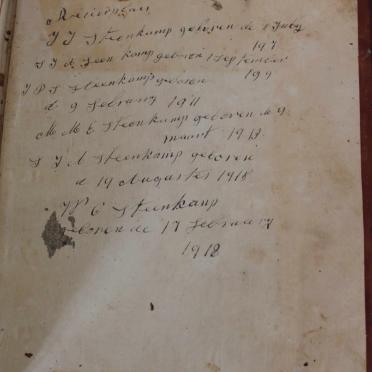 J J Steenkamp geboren de 1 July
197
S J A Steenkamp geboren 1 September
J P S Steenkamp geboren 199
d 9 Februarij 1911
M M E Steenkamp geboren de 9
maart 1913
S J A Steenkamp geboren
d 19 Augustes 1918
W C Steenkamp
geboren de 17 February
1918